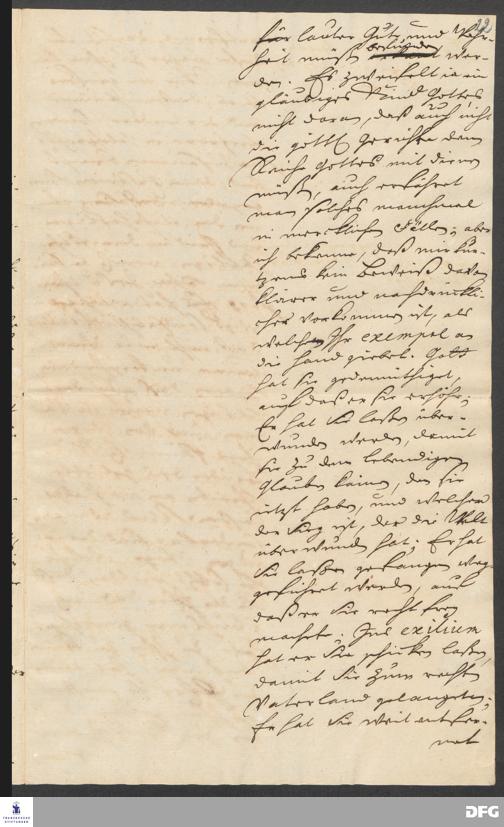 22
für lauter Güte und Wahr-
heit müßen befunden wer-
den. Es zweifelt ia ein
gläubiges Kind Gottes
nicht daran, daß auch nicht
die göttl. Gerichte dem
Reiche Gottes mit dienen
müßen, auch erfähret
man solches manchmal
in mercklichen Fällen; aber
ich bekenne, daß mir kür-
tzens kein Beweiß davon
klärer und nachdrückli-
cher vorkommen ist, als
welchen Ihr exempel an
die Hand giebet. Gott
hat sie gedemüthiget,
auf daß er sie erhöhe;
Er hat Sie laßen über-
wunden werden, damit
sie zu dem lebendigen
Glauben kämen, den sie
ietzt haben, und welcher
der Sieg ist, der die Welt
überwunden hat; Er hat
Sie laßen gefangen weg-
geführet werden, auf
daß er Sie recht frey
machete; Ins exilium
hat er Sie schicken laßen,
damit Sie zum rechten
Vaterland gelangeten;
Er hat Sie weit entfer-
net
FRANCKESCHE
STIFTUNGEN
DFG